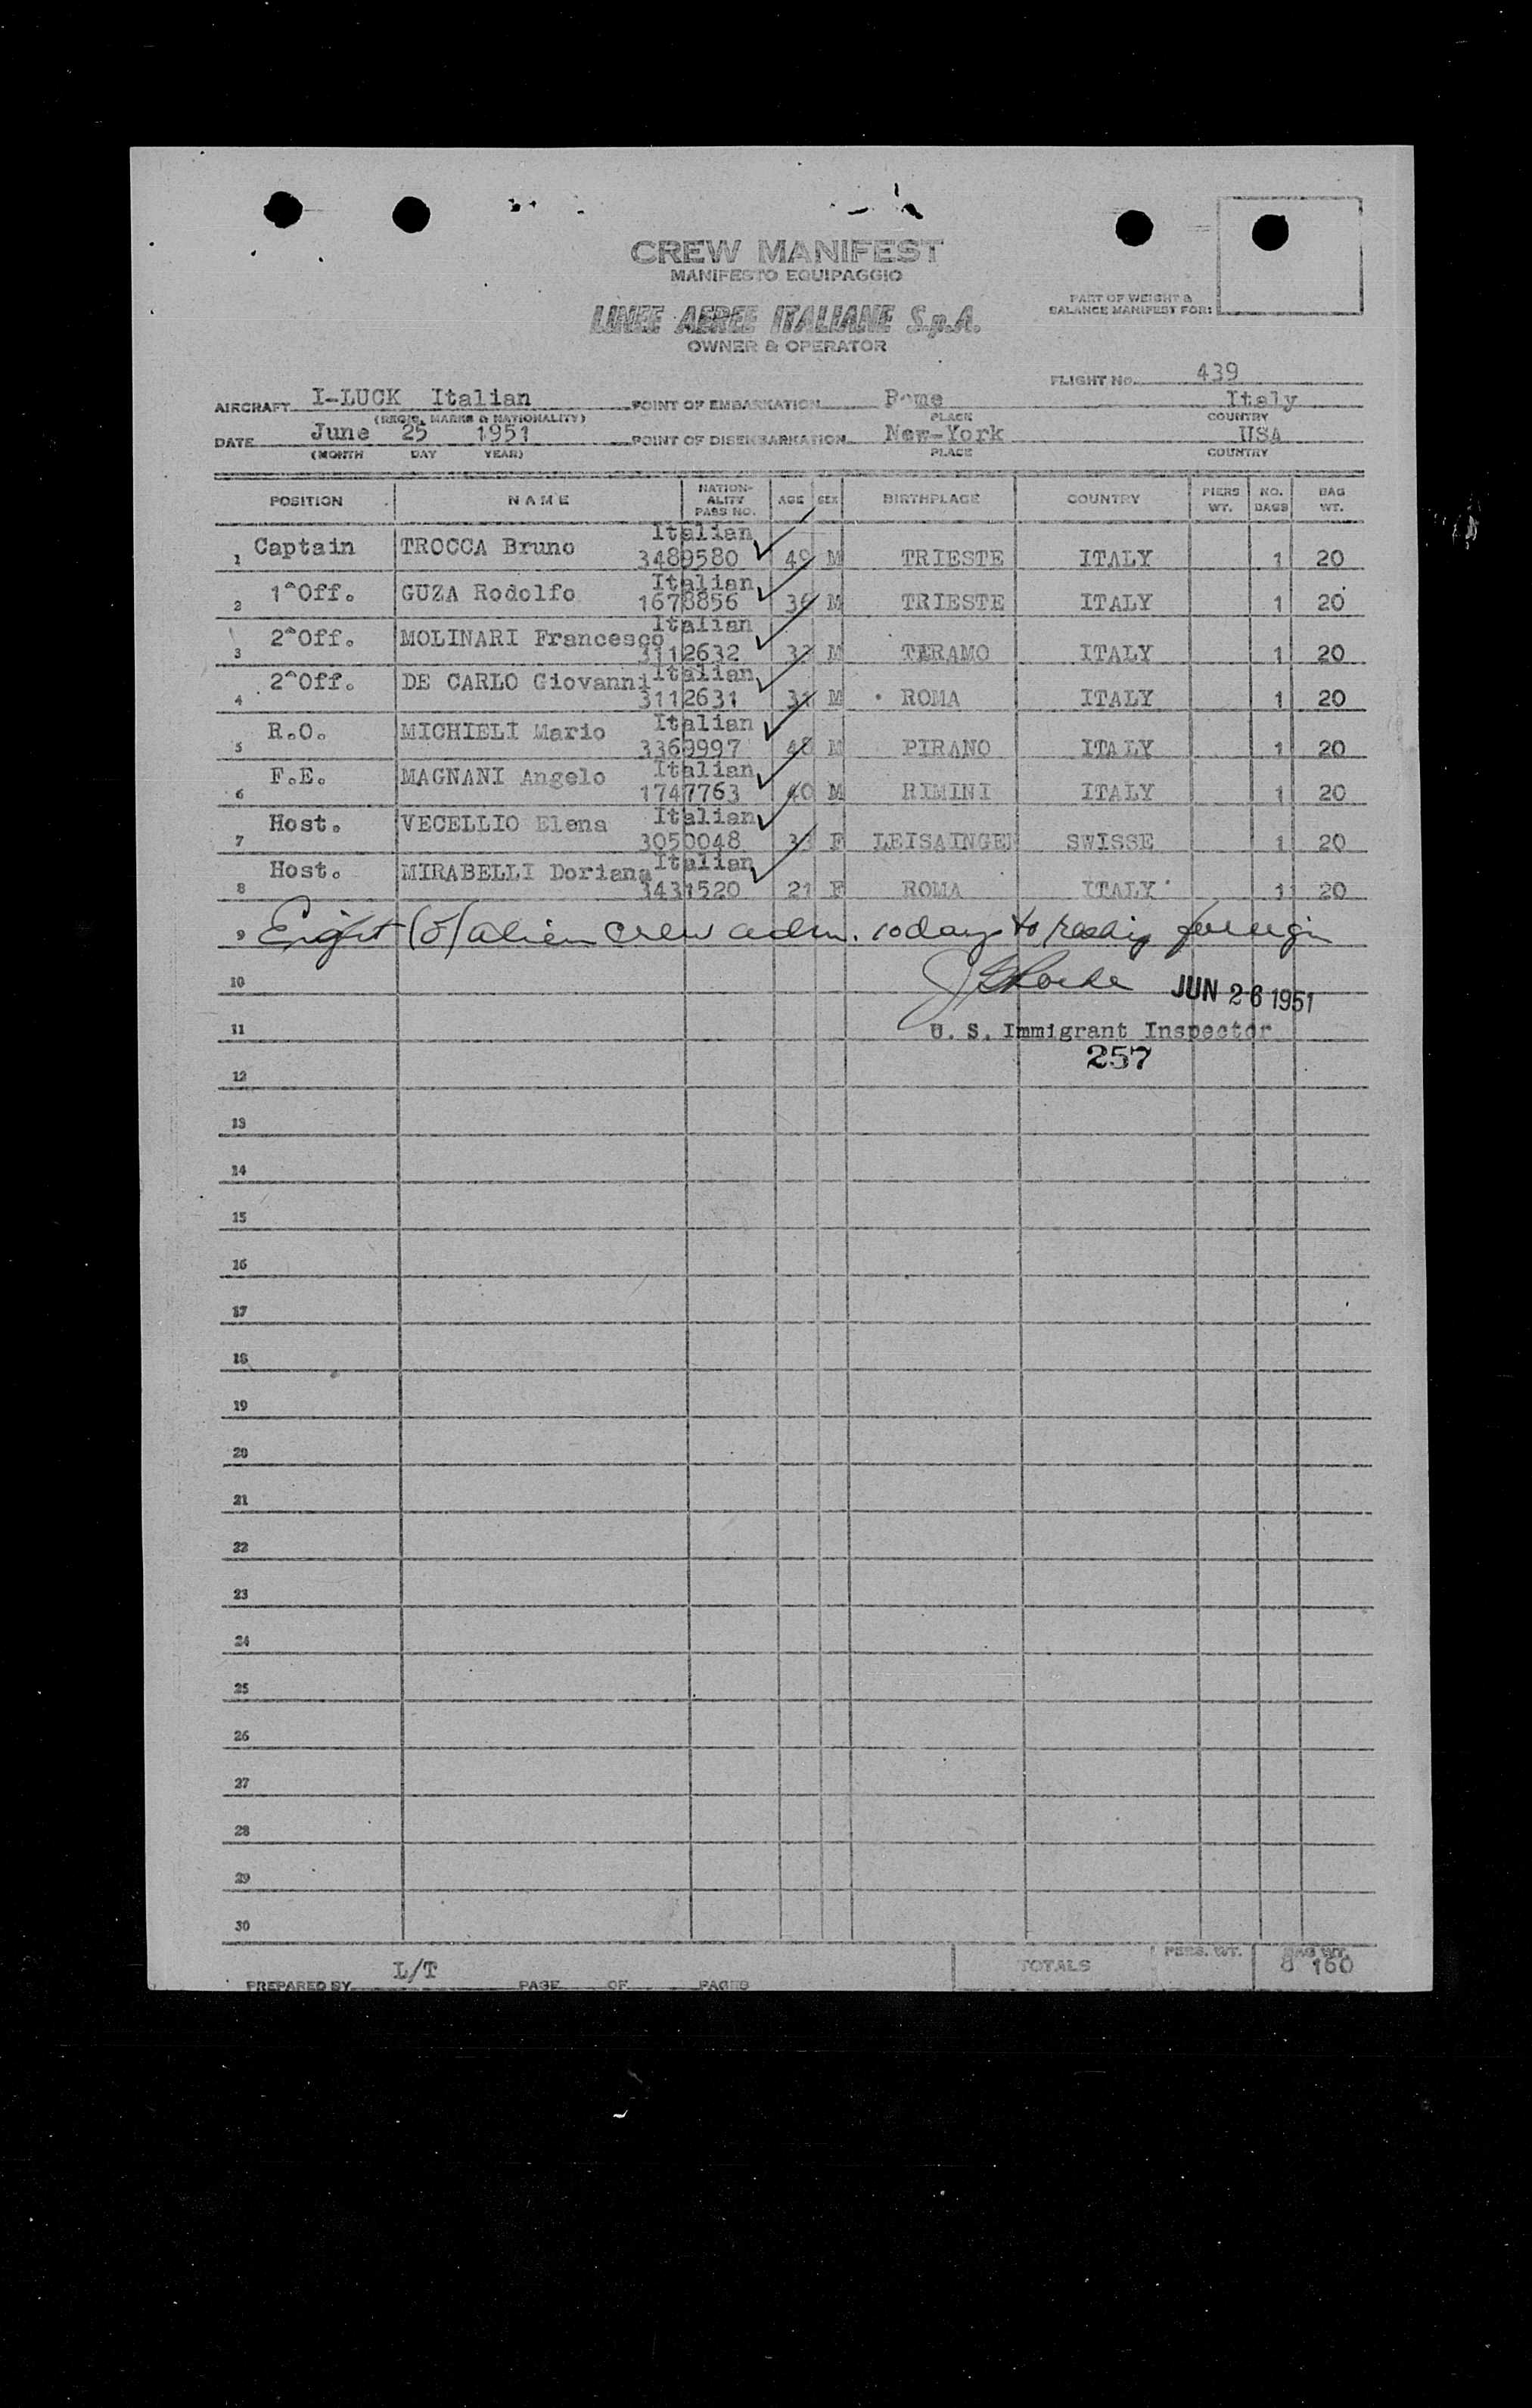 CREW MANIFEST
MANIFESTO EQUIPAGGIO
PART OF WEIGHT &
BALANCE MANIFEST FOR:
LINEE AEREE ITALIANE S.p.A.
OWNER & OPERATOR
FLIGHT No. 439
AIRCRAFT I-LUCK Italian POINT OF EMBARKATION Rome Italy
(REGIS. MARKS & NATIONALITY) PLACE COUNTRY
DATE June 25 1951 POINT OF DISEMBARKATION New-York USA
(MONTH DAY YEAR) PLACE COUNTRY
POSITION NAME NATION-ALITY PASS NO. AGE SEX BIRTHPLACE COUNTRY PIERS WT. NO. BAGS BAG WT.
1 Captain TROCCA Bruno Italian 3489580 49 M TRIESTE ITALY 1 20
2 1^Off. GUZA Rodolfo Italian 1678856 36 M TRIESTE ITALY 1 20
3 2^Off. MOLINARI Francesco Italian 3112632 M TERAMO ITALY 1 20
4 2^Off. DE CARLO Giovanni Italian 3112631 31 M ROMA ITALY 1 20
5 R.O. MICHIELI Mario Italian 3369997 48 M PIRANO ITALY 1 20
6 F.E. MAGNANI Angelo Italian 1747763 40 M RIMINI ITALY 1 20
7 Host. VECELLIO Elena Italian 3050048 F LEISAINGEN SWISSE 1 20
8 Host. MIRABELLI Doriana Italian 3431520 21 F ROMA ITALY 1 20
9 Eight (8) alien crew adm. 10 days to foreign
10 JUN 26 1951
11 U. S. Immigrant Inspector
257
12
13
14
15
16
17
18
19
20
21
22
23
24
25
26
27
28
29
30
PREPARED BY L/T PAGE OF PAGES TOTALS PERS. WT. BAG WT. 8 160